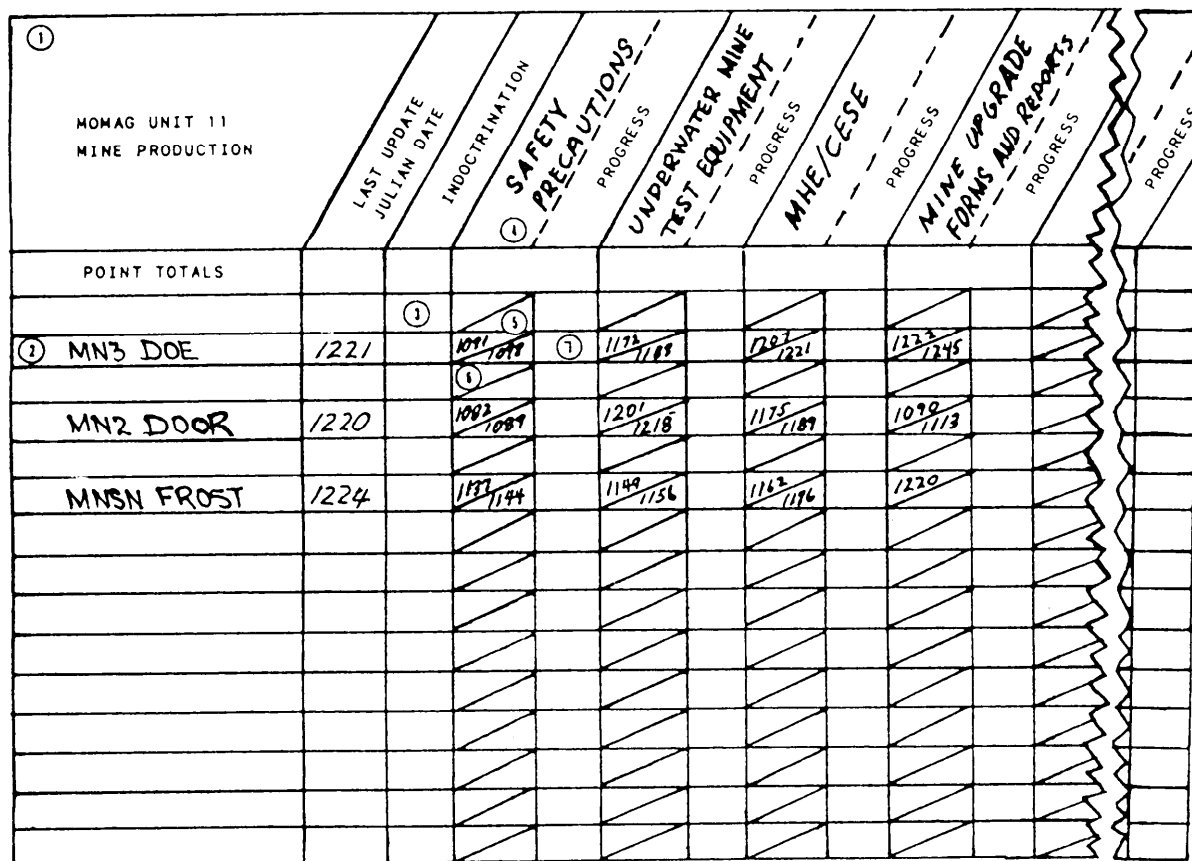 ①
MOMAG UNIT 11
MINE PRODUCTION
LAST UPDATE
JULIAN DATE
INDOCTRINATION
SAFETY
PRECAUTIONS
④
PROGRESS
UNDERWATER MINE
TEST EQUIPMENT
PROGRESS
MHE/CESE
PROGRESS
MINE UPGRADE
FORMS AND REPORTS
PROGRESS
PROGRESS
POINT TOTALS
③ ⑤
② MN3 DOE 1221 1091 1098 ⑦ 1172 1207 1221 1222 1245
⑥
MN2 DOOR 1220 1082 1089 1201 1218 1175 1189 1090 1113
MNSN FROST 1224 1137 1144 1149 1156 1162 1176 1220